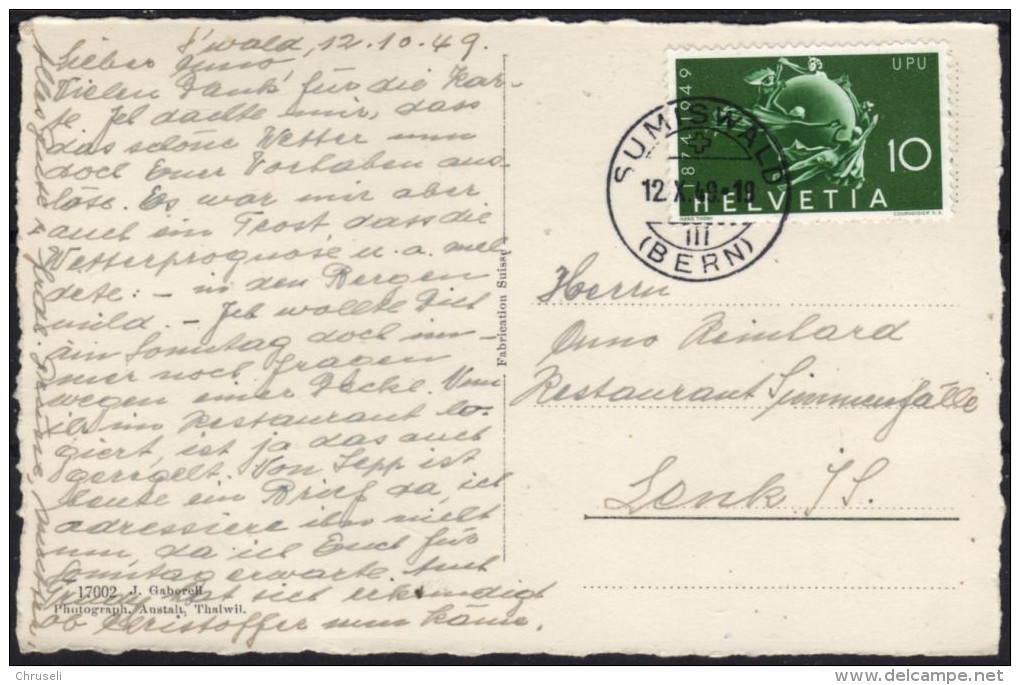 S'wald, 12.10.49.
Lieber Onno
Vielen Dank für die Kar-
te. Ich dachte mir, dass
das schöne Wetter nun
doch Euer Vorhaben aus-
löse. Es war mir aber
auch ein Trost dass die
Wetterprognose u.a. mel-
dete: – in den Bergen
mild. – Ich wollte Dich
am Sonntag doch im-
mer noch fragen
wegen einer Decke. Wenn
ihr im Restaurant lo-
giert, ist ja das auch
geregelt. Von Sepp ist
heute ein Brief da, ich
adressiere ihn nicht
um, da ich Euch für
Sonntag erwarte. Auch
hat sich erkundigt
ob Kristoffer nun käme.
Alles Gute &
Deine Mutter
17002 J. Gaberell
Photograph. Anstalt, Thalwil.
Fabrication Suisse
1874 1949
UPU
10
HELVETIA
HANS THÖNI
COURVOISIER S.A.
SUMISWALD
12.X.49-19
III
(BERN)
Herrn
Onno Reinhard
Restaurant Simmenfälle
Lenk /S.
Chruseli
delcampe.net